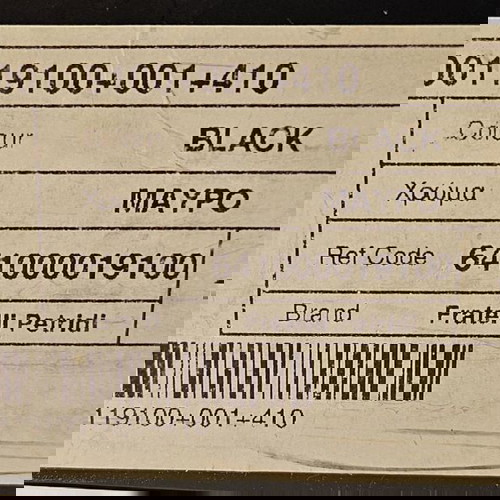 00119100+001+410
Colour BLACK
ΜΑΥΡΟ Χρώμα
Ref Code 641000019100
Fratelli Petridi Brand Fratelli Petridi
119100+001+410